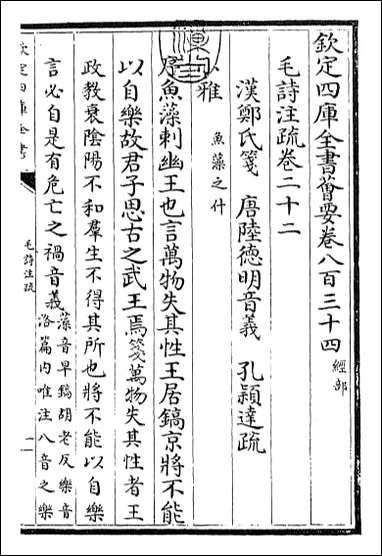 欽定四庫全書薈要卷八百三十四 經部
毛詩注疏卷二十二
漢鄭氏箋 唐陸德明音義 孔穎達疏
小雅 魚藻之什
序魚藻刺幽王也言萬物失其性王居鎬京將不能
以自樂故君子思古之武王焉箋萬物失其性者王
政教衰陰陽不和羣生不得其所也將不能以自樂
言必自是有危亡之禍音義 藻音早鎬胡老反樂音
洛篇内唯注八音之樂
欽定四庫全書
毛詩注疏
一